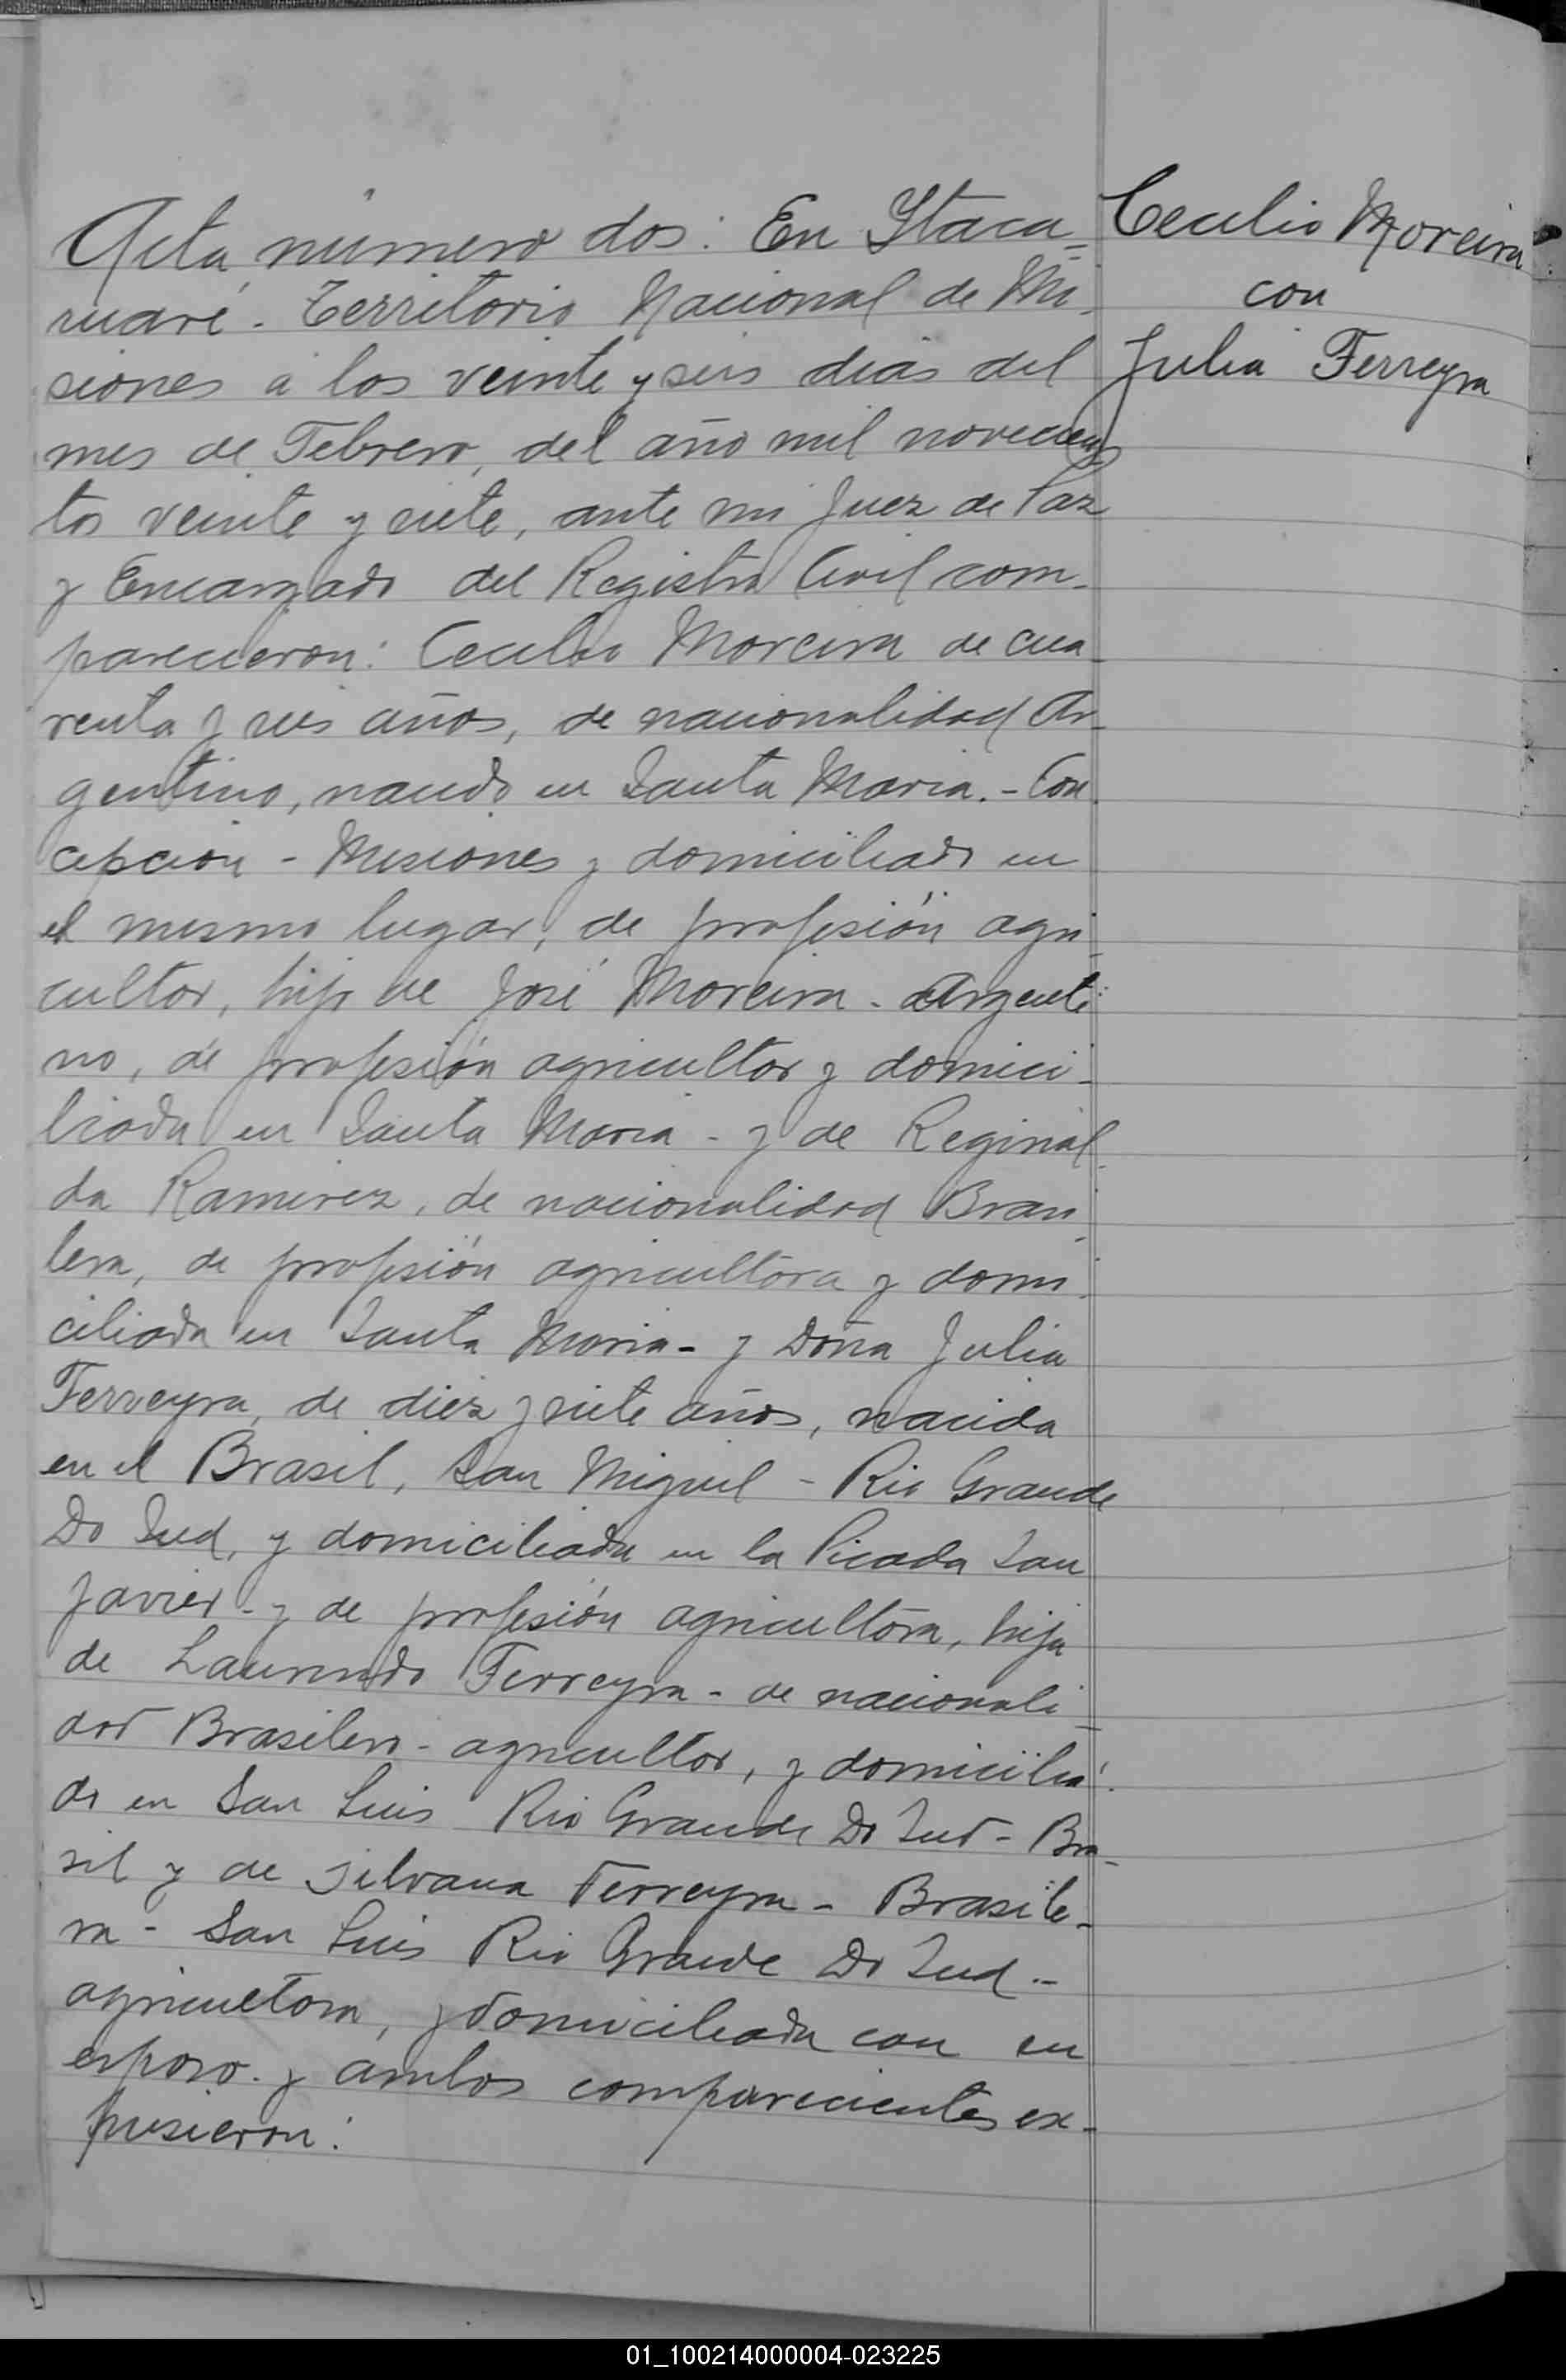 Acta número dos: En Itaca-
ruaré - Territorio Nacional de Mi-
siones a los veinte y seis dias del
mes de Febrero, del año mil novecien-
tos veinte y siete, ante mi Juez de Paz
y Encargado del Registro Civil com-
parecieron: Cecilio Moreira de cua-
renta y seis años, de nacionalidad Ar-
gentino, nacido en Santa Maria. - Con-
cepcion - Misiones y domiciliado en
el mismo lugar, de profesión agri-
cultor, hijo de José Moreira - Argenti-
no, de profesión agricultor y domici-
liado en Santa Maria - y de Reginal-
da Ramirez, de nacionalidad Brasi-
lera, de profesión agricultora y domi-
ciliada en Santa Maria - y Doña Julia
Ferreyra, de diez y siete años, nacida
en el Brasil, San Miguel - Rio Grande
Do Sud, y domiciliada en la Picada San
Javier - y de profesión agricultora, hija
de Laurindo Ferreyra - de nacionali-
dad Brasilero - agricultor, y domicilia-
do en San Luis Rio Grande Do Sud - Bra-
sil y de Silvana Ferreyra - Brasile-
ra - San Luis Rio Grande Do Sud -
agricultora, y domiciliada con su
esposo - y ambos comparecientes ex-
pusieron:
Cecilio Moreira
con
Julia Ferreyra
01_100214000004-023225